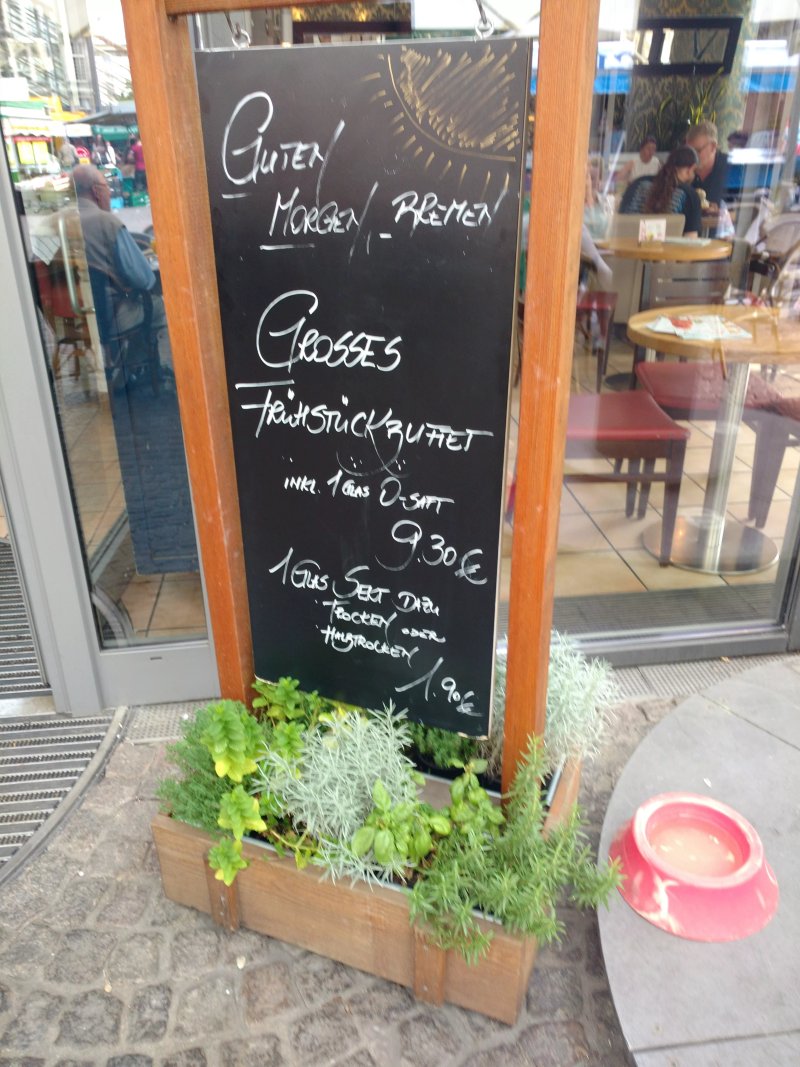 GUTEN
MORGEN, BREMEN
GROSSES
FRÜHSTÜCKBUFFET
INKL. 1 GLAS O-SAFT
9.30 €
1 GLAS SEKT DAZU
TROCKEN ODER
HALBTROCKEN
1.90 €